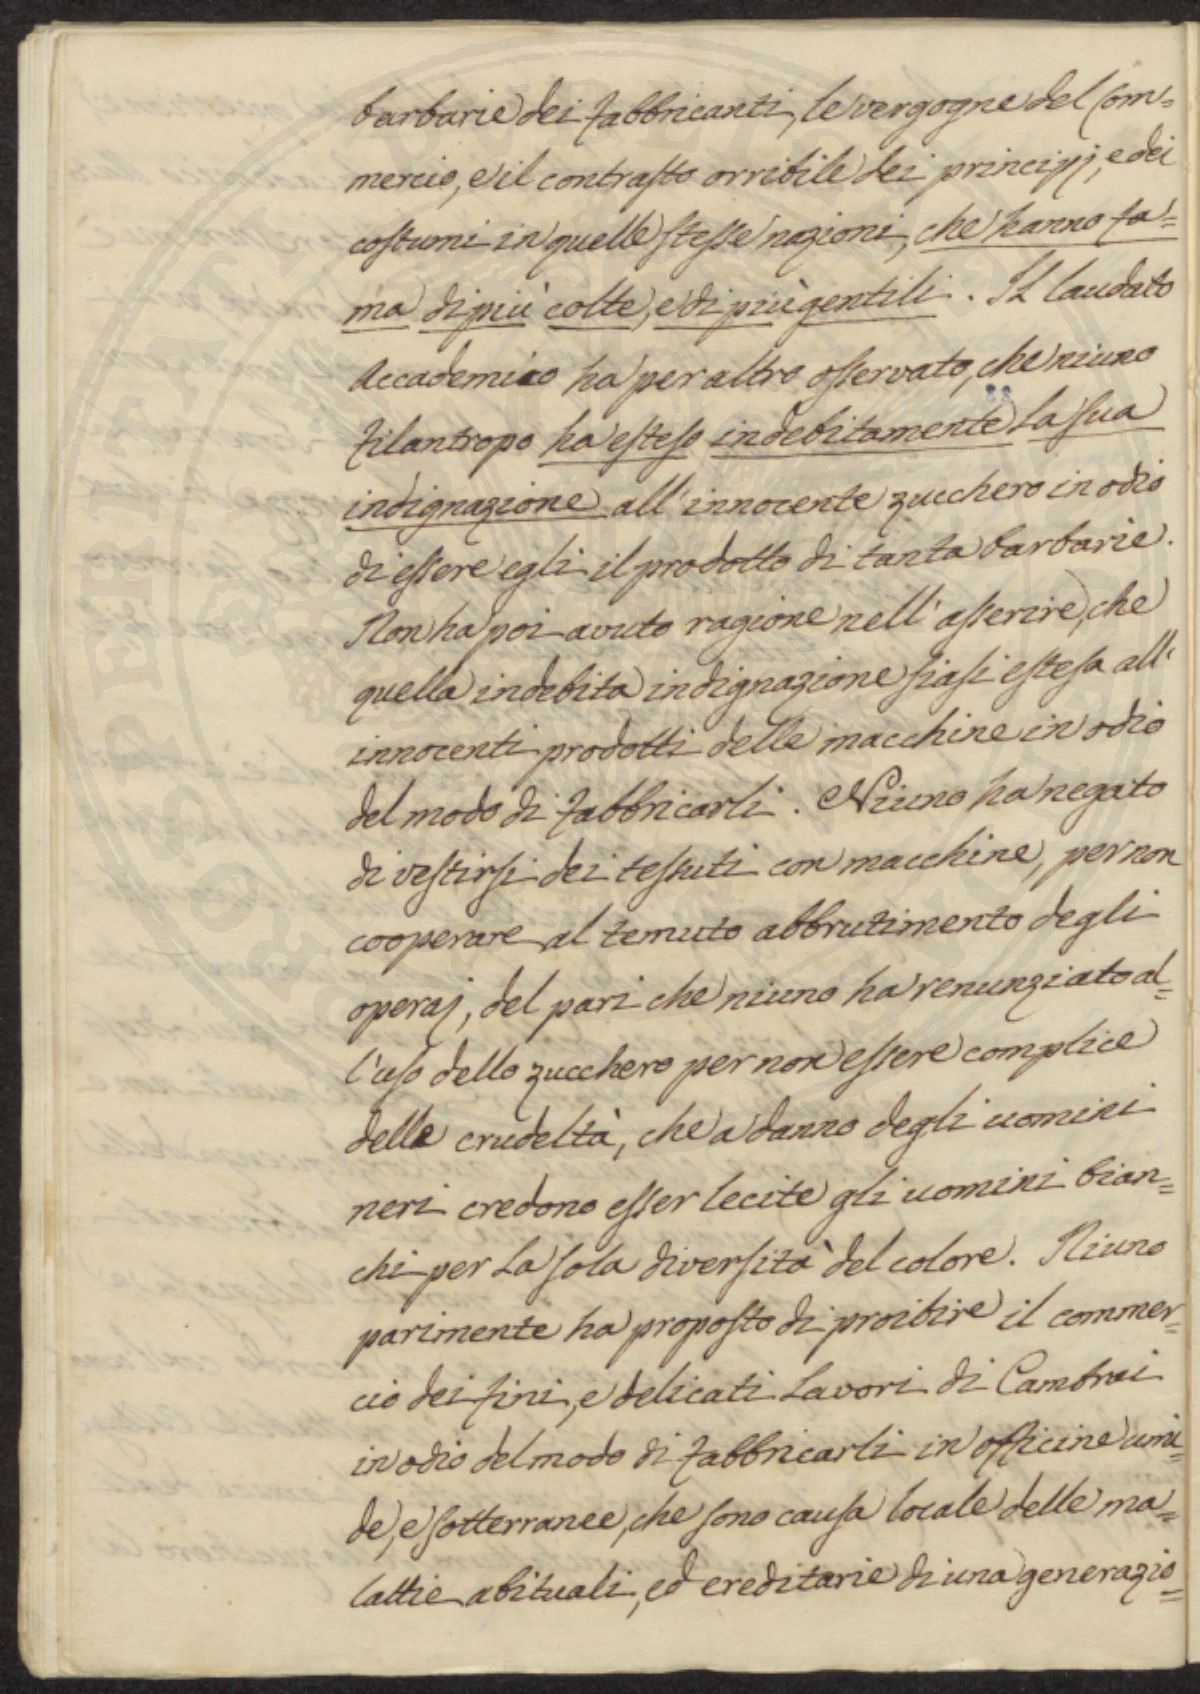 barbarie dei fabbricanti, le vergogne del Com=
mercio, e il contrasto orribile dei principj, e dei
costumi in quelle stesse nazioni, che hanno fa=
ma di più colte, e di più gentili. Il laudato
Accademico ha per altro osservato, che niuno
filantropo ha esteso indebitamente la sua
indignazione all'innocente zucchero in odio
di essere egli il prodotto di tanta barbarie.
Non ha poi avuto ragione nell'asserire, che
quella indebita indignazione siasi estesa all'
innocenti prodotti delle macchine in odio
del modo di fabbricarli. Niuno ha negato
di vestirsi dei tessuti con macchine, per non
cooperare al temuto abbrutimento degli
operaj, del pari che niuno ha renunziato al=
l'uso dello zucchero per non essere complice
delle crudeltà, che a danno degli uomini
neri credono esser lecite gli uomini bian=
chi per la sola diversità del colore. Niuno
parimente ha proposto di proibire il commer=
cio dei fini, e delicati lavori di Cambrai
in odio del modo di fabbricarli in officine umi=
de, e sotterranee, che sono causa locale delle ma=
lattie abituali, ed ereditarie di una generazio=
PROSPERITATI PUBLICAE